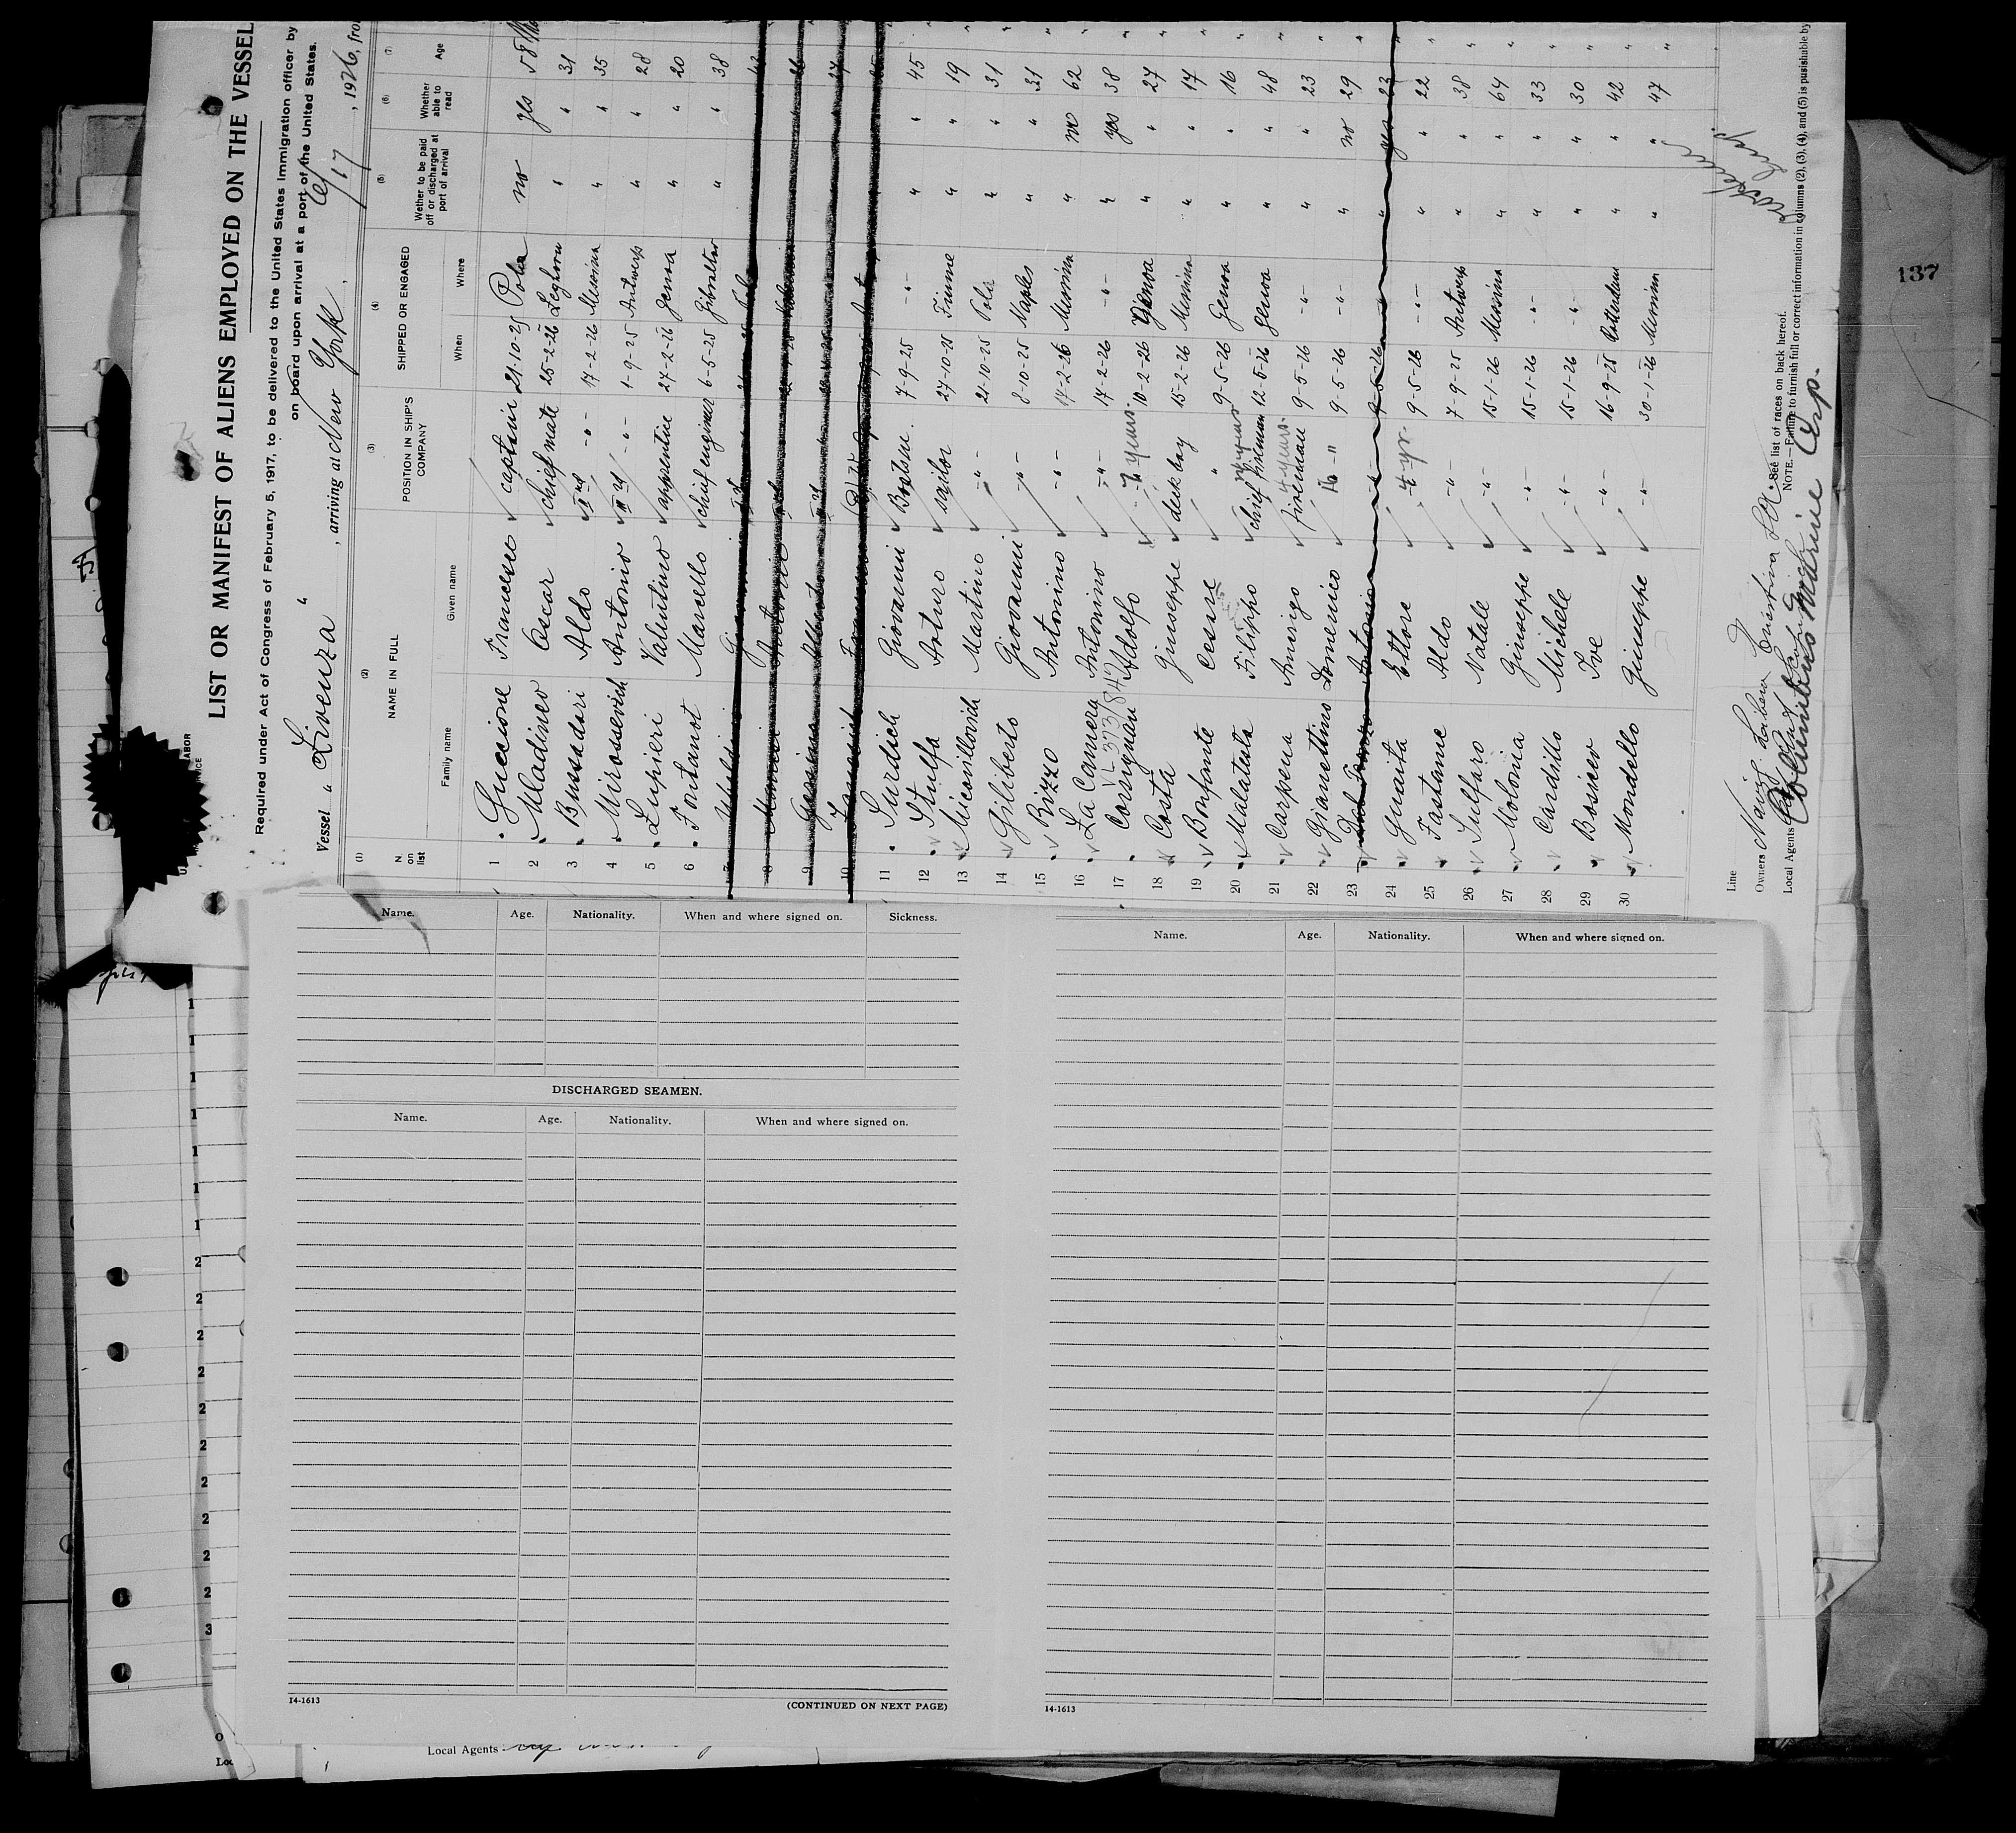 LIST OR MANIFEST OF ALIENS EMPLOYED ON THE VESSEL
Required under Act of Congress of February 5, 1917, to be delivered to the United States Immigration officer by
on board upon arrival at a port of the United States.
Vessel " Livenza " , arriving at New York , 6/17 , 1926, fro
(1) (2) (3) (4) (5) (6) (7)
N on list NAME IN FULL POSITION IN SHIP'S COMPANY SHIPPED OR ENGAGED Wether to be paid off or discharged at port of arrival Whether able to read Age
Family name Given name When Where
1 Guccione Francesco captain 21-10-25 Pola no yes 58
2 Mladineo Oscar chief mate 25-2-26 Leghorn " " 31
3 Bussadari Aldo IInd -"- 17-2-26 Messina " " 35
4 Mirossevich Antonio III rd -"- 1-9-25 Antwerp " " 28
5 Lupieri Valentino apprentice 27-2-26 Genoa " " 20
6 Fontanot Marcello chief engineer 6-5-25 Gibraltar " " 38
7
8
9
10
11 Surdich Giovanni Boatsw. 7-9-25 -"- " " 45
12 Stulfa Arturo sailor 27-10-25 Fiume " " 19
13 Nicovillovich Martino -"- 21-10-25 Pola " " 31
14 Giliberto Giovanni -"- 8-10-25 Naples " " 31
15 Rizzo Antonino -"- 17-2-26 Messina " no 62
16 La Camera Antonino -"- 17-2-26 -"- " yes 38
17 Corsignani Adolfo -"- 7 years. 10-2-26 Genoa " " 27
18 Costa Giuseppe deck boy 15-2-26 Messina " " 17
19 Bonfante Cesare " 9-5-26 Genoa " " 16
20 Malatuta Filippo chief fireman 12-5-26 Genoa " " 48
21 Carpena Amerigo fireman 4 years. 9-5-26 -"- " " 23
22 Gianettino Domenico 9-5-26 -"- " no 29
23 Antonio -"- 9-5-26 " yes 23
24 Guaita Ettore -"- 4 yr. 9-5-26 -"- " " 22
25 Fastame Aldo -"- 7-9-25 Antwerp " " 38
26 Sulfaro Natale -"- 15-1-26 Messina " " 64
27 Molonia Giuseppe -"- 15-1-26 -"- " " 33
28 Cardillo Michele -"- 15-1-26 -"- " " 30
29 Bosicev Ive -"- 16-9-25 Rotterdam " " 42
30 Mondello Giuseppe -"- 30-1-26 Messina " " 47
Line
Owners Navig. Libera Triestina
Local Agents Columbus Marine Corp.
See list of races on back hereof.
NOTE.—Failure to furnish full or correct information in columns (2), (3), (4), and (5) is punishable by
137
Name. Age. Nationality. When and where signed on. Sickness.
DISCHARGED SEAMEN.
Name. Age. Nationality. When and where signed on.
14-1613
(CONTINUED ON NEXT PAGE)
Name. Age. Nationality. When and where signed on.
14-1613
Local Agents